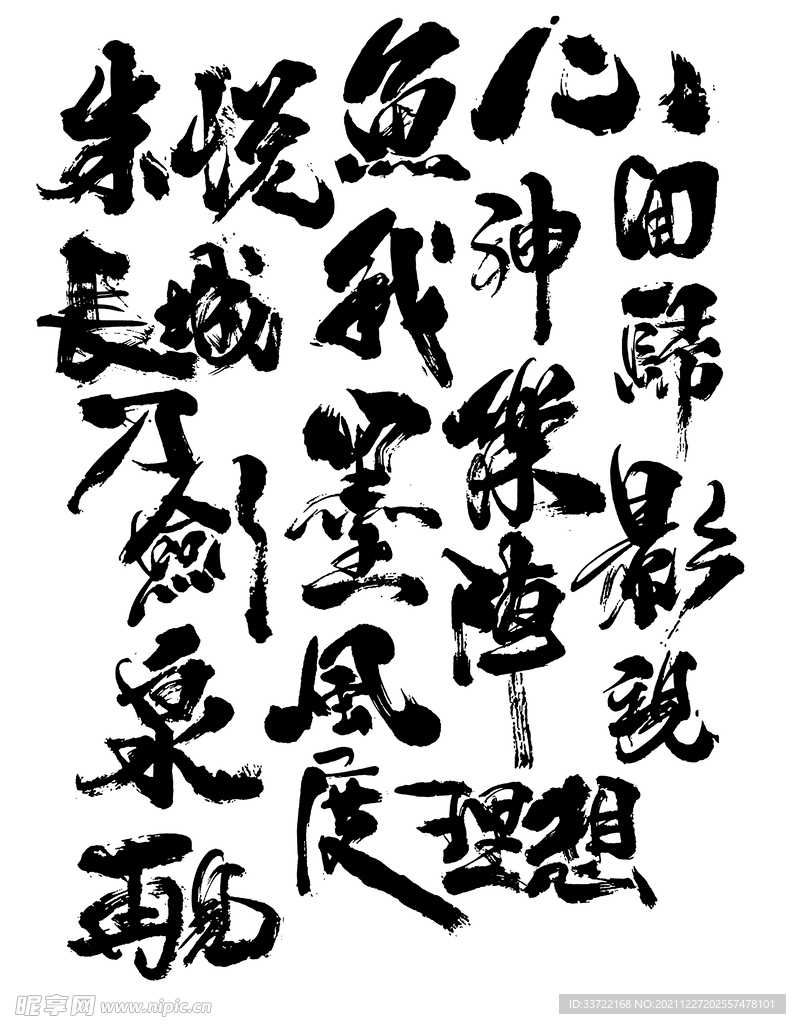 朱悦
魚
心
長城
我
神
回歸
刀劍
墨
樂陣
影視
泉
風度
理想
再現
昵享网 www.nipic.cn
ID:33722168 NO:20211227202557478101